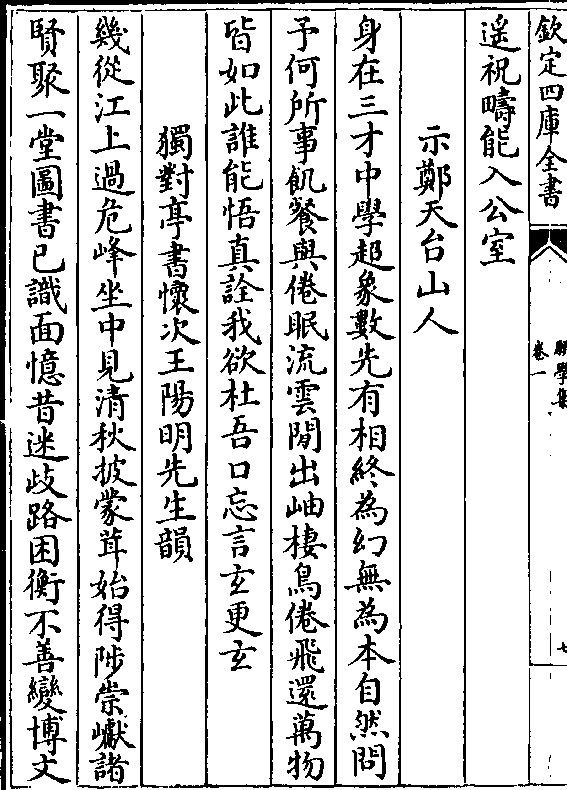 欽定四庫全書
卷一
七
遥祝疇能入公室
示鄭天台山人
身在三才中學超象數先有相終為幻無為本自然問
予何所事飢餐與倦眠流雲閒出岫棲鳥倦飛還萬物
皆如此誰能悟真詮我欲杜吾口忘言玄更玄
獨對亭書懷次王陽明先生韻
幾從江上過危峰坐中見清秋披蒙茸始得陟崇巘諸
賢聚一堂圖書已識面憶昔迷歧路困衡不善變博文